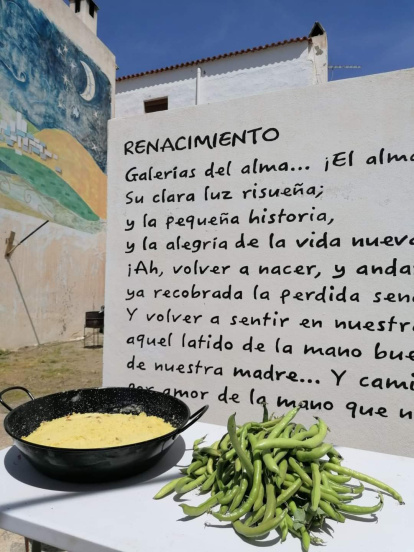 RENACIMIENTO
Galerías del alma... ¡El alma
Su clara luz risueña;
y la pequeña historia,
y la alegría de la vida nueva
¡Ah, volver a nacer, y
ya recobrada la perdida
Y volver a sentir en
aquel latido de la mano
de nuestra madre... Y
por amor de la mano que